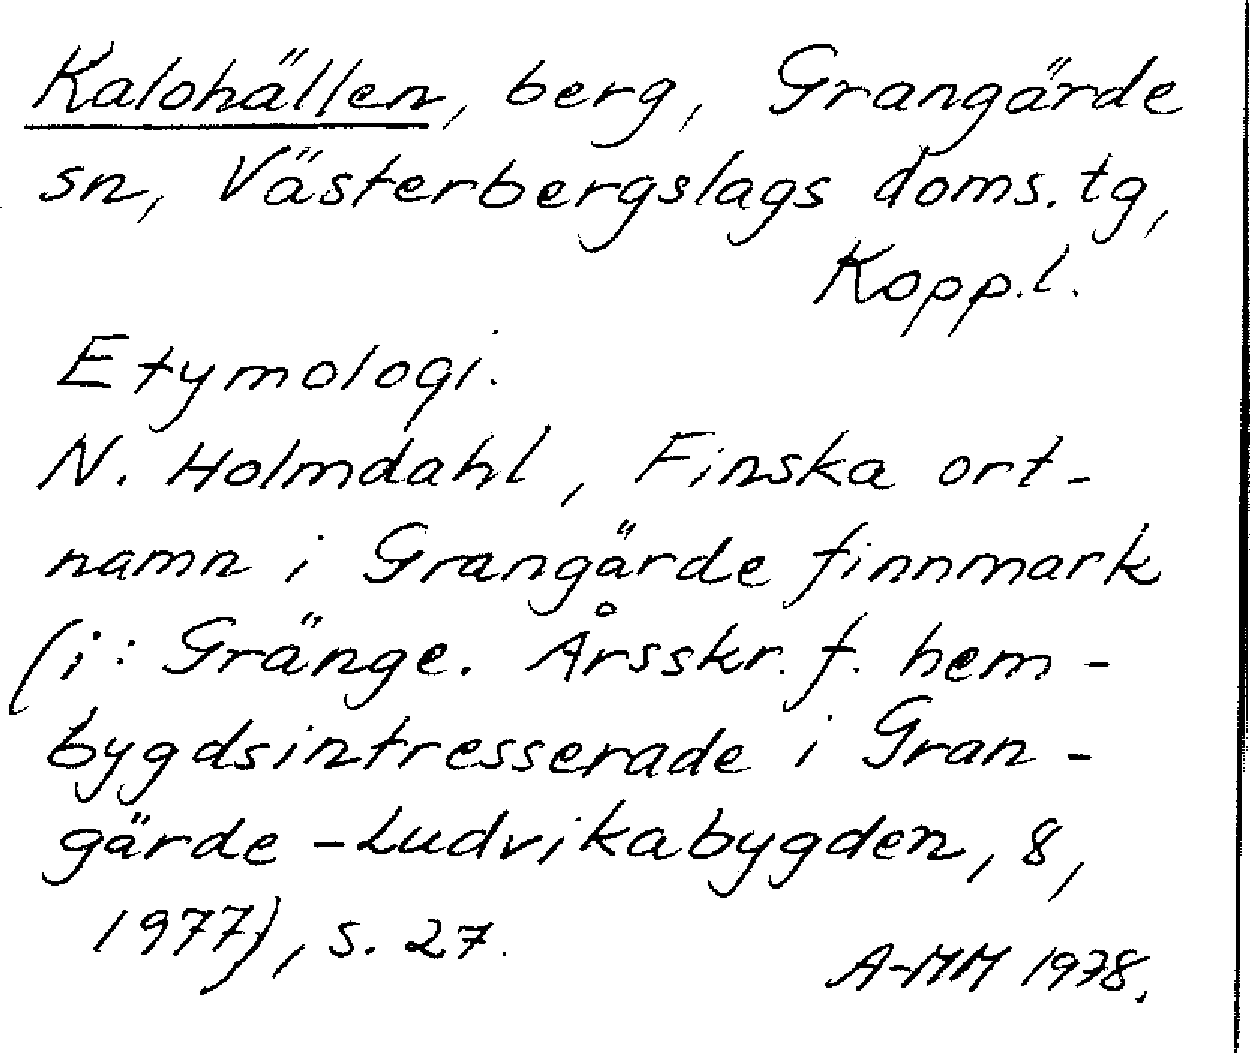 Kalohällen, berg, Grangärde
sn, Västerbergslags doms. tg,
Kopp.l.
Etymologi.
N. Holmdahl, Finska ort-
namn i Grangärde finnmark
(i: Gränge. Årsskr. f. hem-
bygdsintresserade i Gran-
gärde - Ludvikabygden, 8,
1977), s. 27.
A-MM 1978.